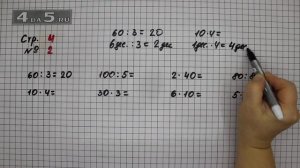 4da5.ru
Стр. 4
№ 2
60 : 3 = 20
6дес. : 3 = 2 дес
10 · 4 =
1дес · 4 = 4 дес
60 : 3 = 20
100 : 5 =
2 · 40 =
80 : 8
10 · 4 =
30 · 3 =
6 · 10 =
5 ·